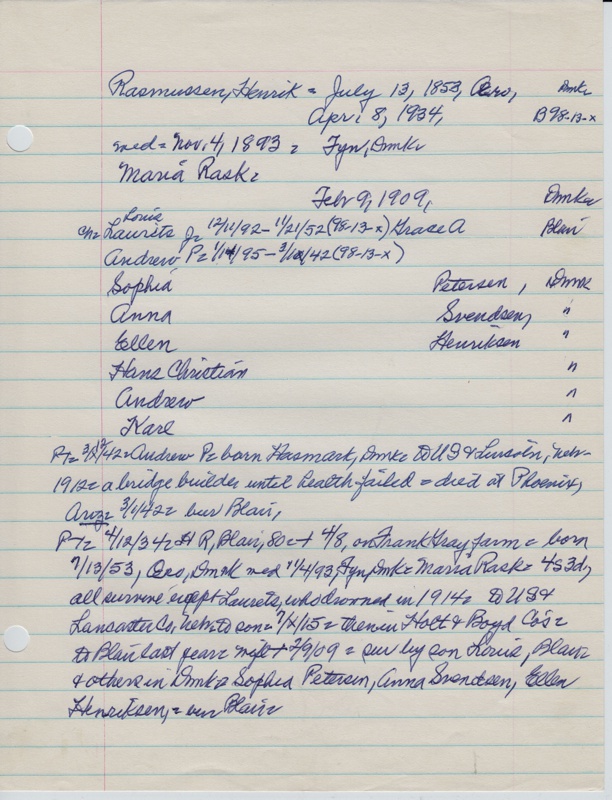 Rasmussen, Henrik = July 13, 1853, Aero, Dmk
Apri 8, 1934, B98-13-x
med = Nov. 4, 1893 = Fyn, Dmk
Maria Rask =
Feb 9, 1909, Dmk
Louis
ch = Laurits J = 12/11/92 - 11/21/52 (98-13-x) Grase A Blair
Andrew P = 1/ /95 - 3/ /42 (98-13-x)
Sophia Petersen, Dmk
Anna Svendsen, "
Ellen Henriksen "
Hans Christian "
Andrew "
Karl "
PT = 3/12/42 = Andrew P = born Hasmark, Dmk = to US & Lincoln, Nebr-
1912 = a bridge builder until health failed = died at Phoenix,
Ariz = 3/1/42 = bur Blair,
PT = 4/12/34 = H R, Blair, 80 = + 4/8, on Frank Gray farm = born
7/13/53, Aero, Dmk med 11/4/93, Fyn, Dmk = Maria Rask = 4S 3d,
all survive except Laurets, who drowned in 1914 = to US &
Lancaster Co, Nebr to son = /15 = then in Holt & Boyd Co's =
to Blair last year = wife + 2/9/09 = sur by son Louis, Blair
& others in Dmk = Sophia Petersen, Anna Svendsen, Ellen
Henriksen, = bur Blair =